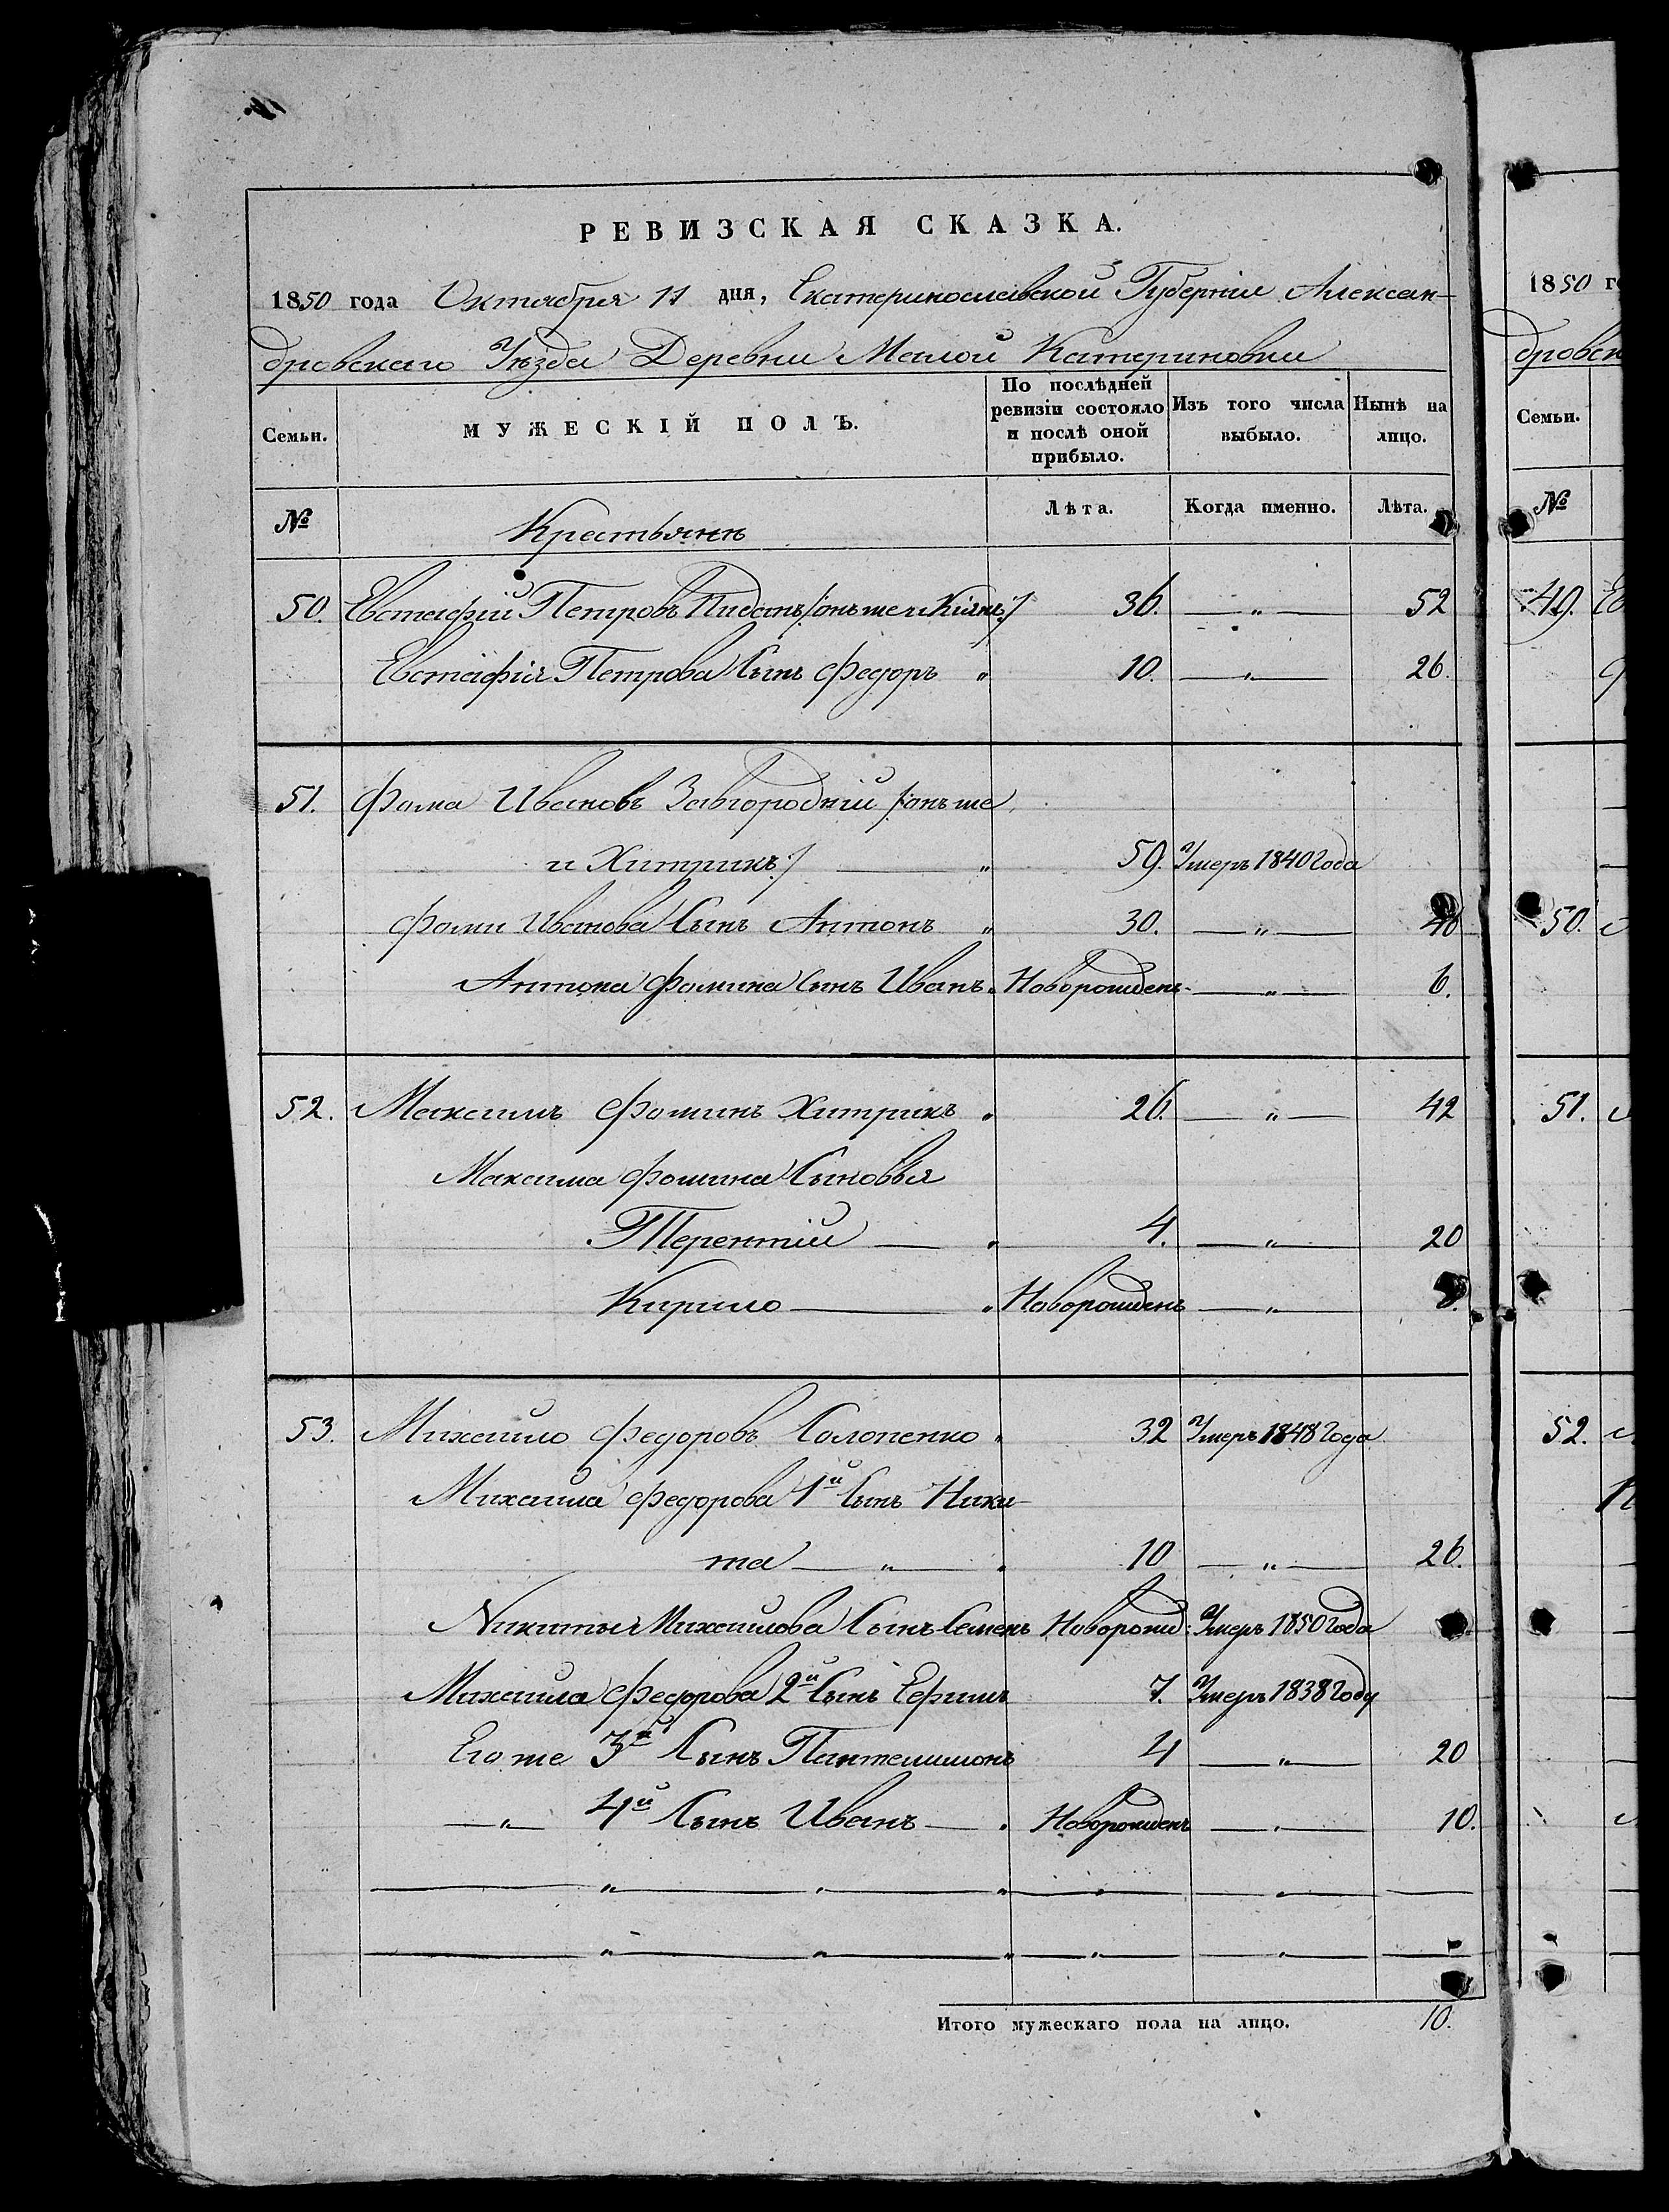 РЕВИЗСКАЯ СКАЗКА.
1850 года Октября 11 дня, Екатеринославской Губерніи Алексан-
дровскаго Уѣзда Деревни Малой Катериновки
Семьи. МУЖЕСКІЙ ПОЛЪ. По послѣдней ревизіи состояло и послѣ оной прибыло. Изъ того числа выбыло. Нынѣ на лицо.
№ Крестьянъ Лѣта. Когда именно. Лѣта.
50. Евстафій Петровъ /:онъ же и :/ 36. — „ — 52
Евстафія Петрова Сынъ Федоръ „ 10. — „ — 26.
51. Фома Ивановъ Завгородній /:онъ же
и Хитрикъ:/ — „ 59. Умеръ 1840 Года
Фомы Иванова Сынъ Антонъ „ 30. — „ —
Антона Фомина Сынъ Иванъ „ Новорожденъ — „ — 6.
52. Максимъ Фоминъ Хитрикъ „ 26. — „ — 42
Максима Фомина Сыновья
Терентій — „ 4. — „ — 20
Кирило — „ Новорожденъ — „ —
53. Михайло Федоровъ Солопенко „ 32 Умеръ 1848 Года
Михайла Федорова 1й Сынъ Ники-
та — „ — „ 10 — „ — 26.
Никиты Михайлова Сынъ Семенъ Новорожд: Умеръ 1850 Года
Михайла Федорова 2й Сынъ Ефимъ 7. Умеръ 1838 Году
Его же 3й Сынъ Пантелимонъ 4 — „ — 20
— „ — 4й Сынъ Иванъ — „ Новорожденъ — „ — 10.
Итого мужескаго пола на лицо. 10.
1850 го
дровск
Семьи.
№
49. Ев
50.
51.
52.